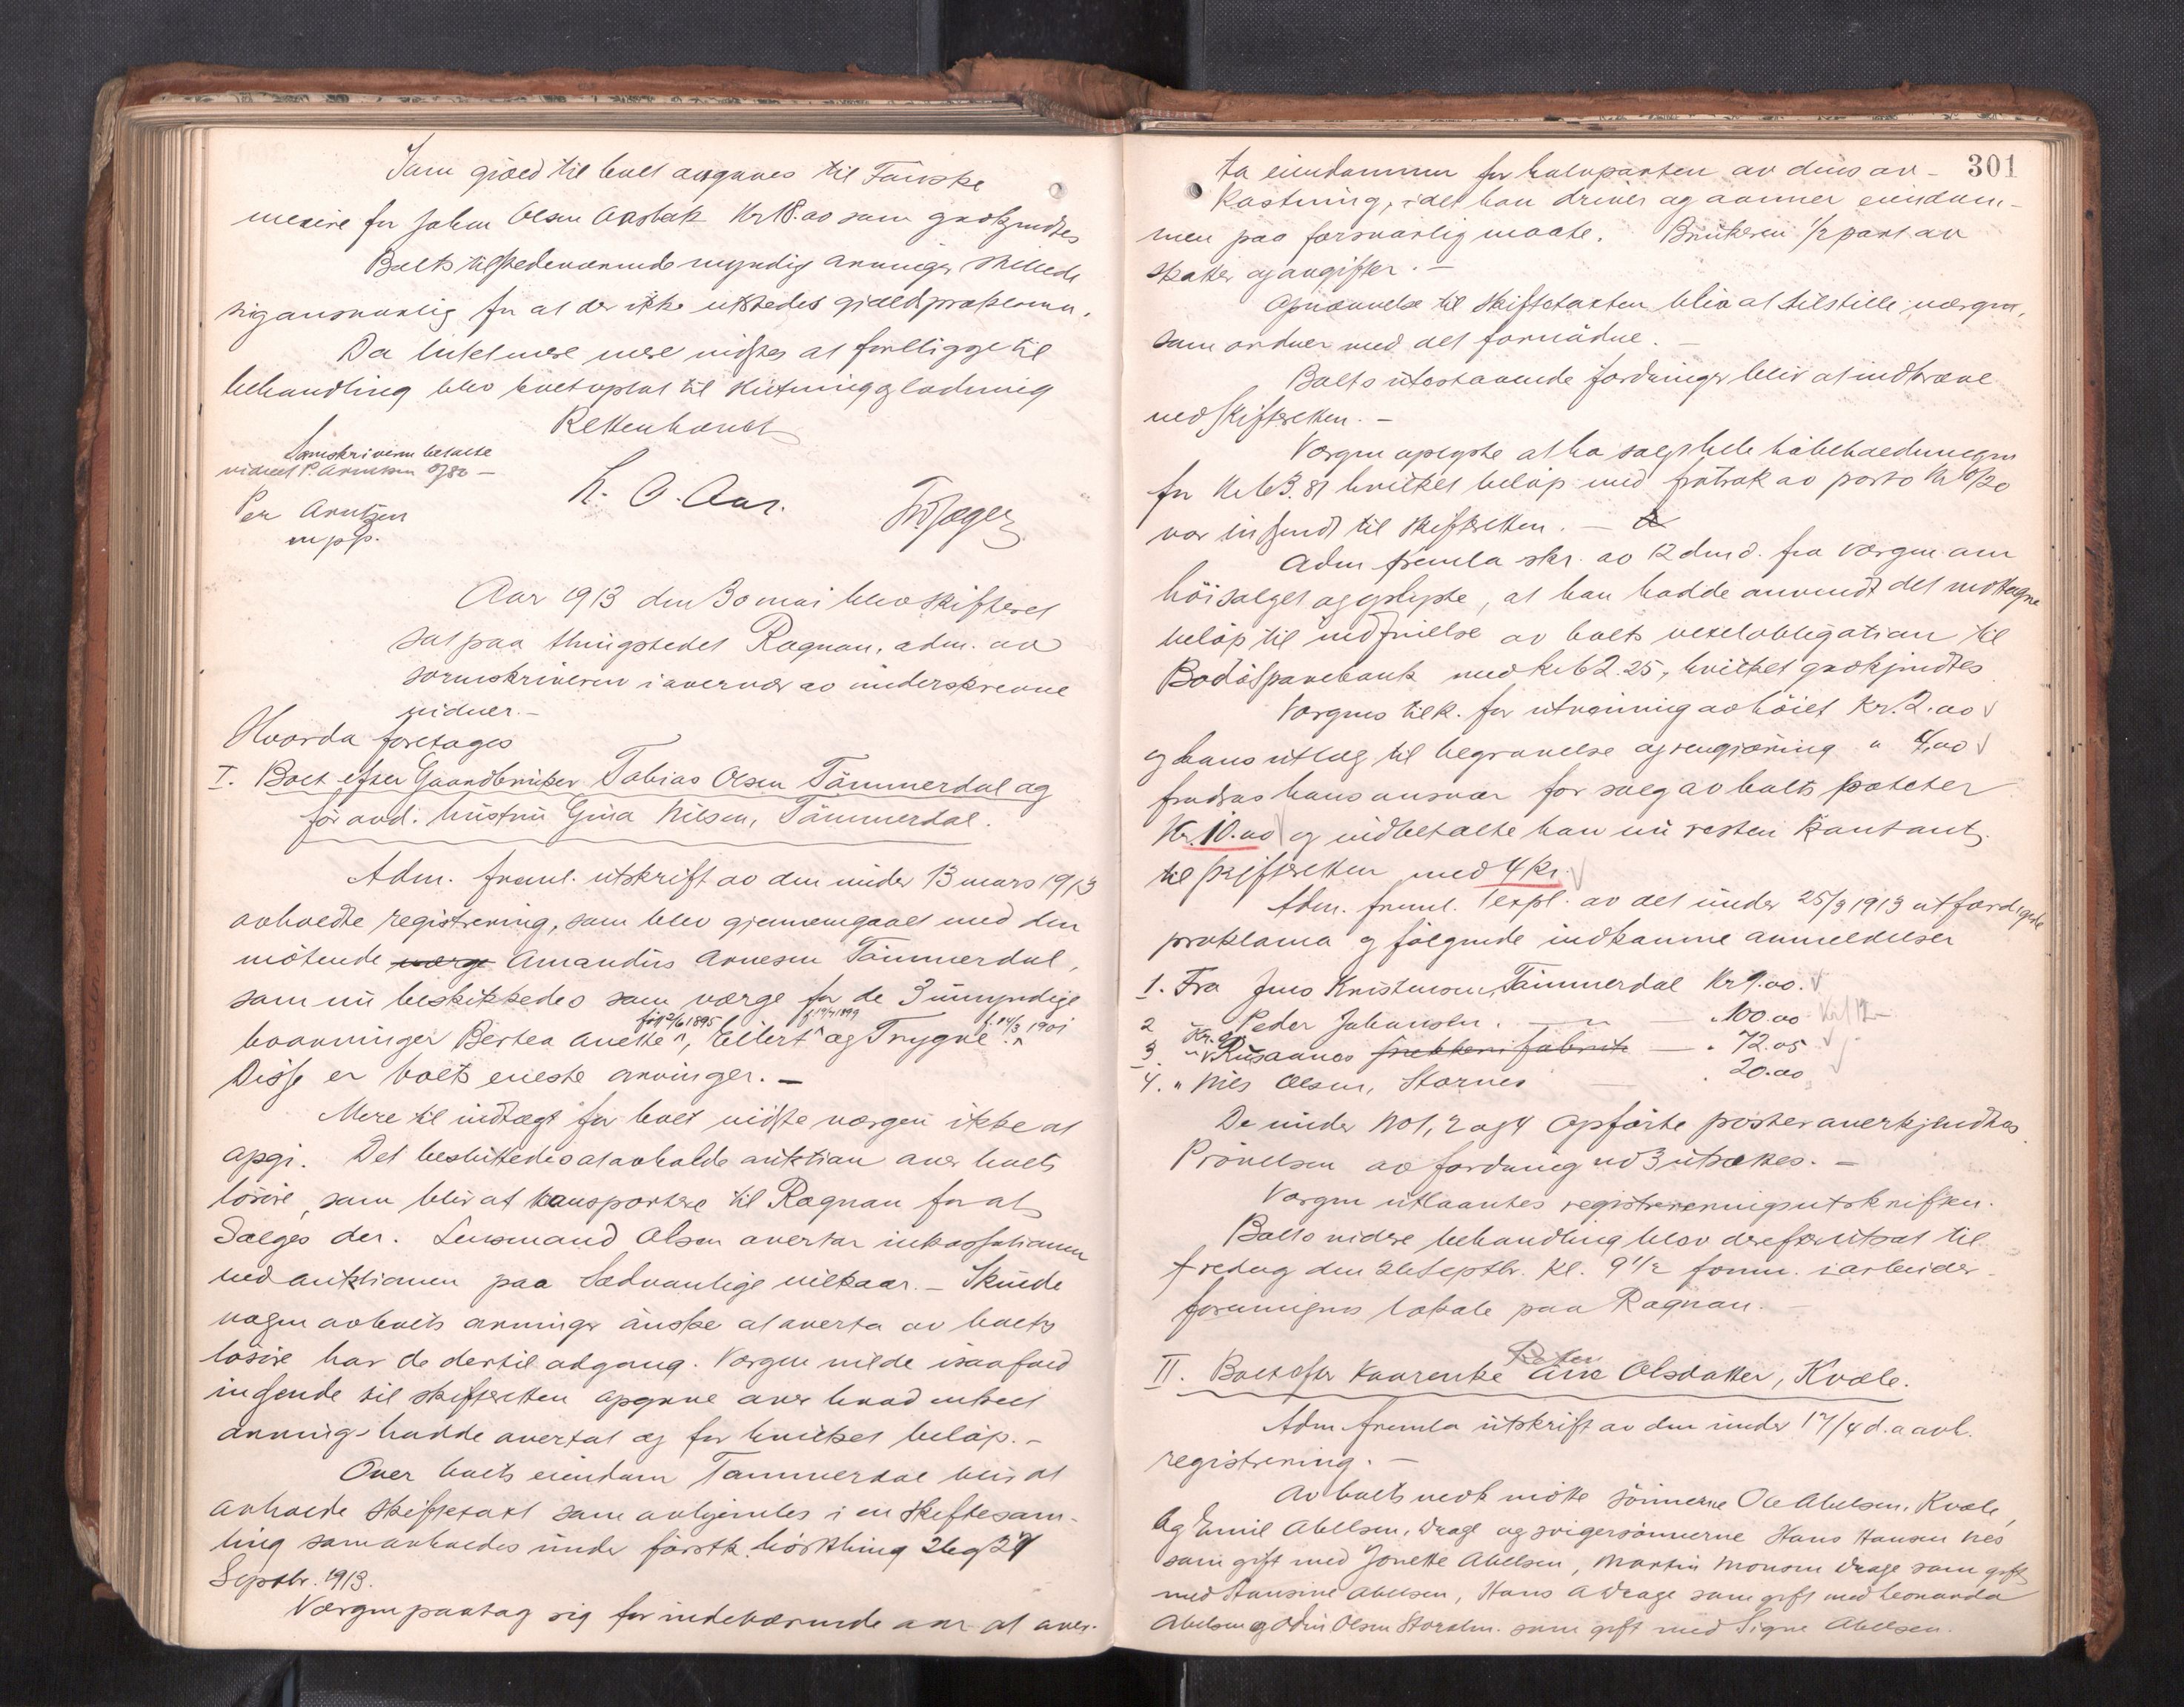 Som gjæld til boet avgaves til Fauske
meieri for Johan Olsen Kr 18.00 som godkjendtes
Boets tilstedeværende myndig arvinger stillede
sig ansvarlig for at der ikke utstedes gjældsproklama.
Da intet mere mere vidstes at foreligge til
behandling blev boet optat til slutning og lodning
Retten hævet
Sorenskriveren betalte
vidnet P. Arntsen 0/80 —
Per Arntzen
m p p.
K. O. Aar.
Fr. Jæger
Aar 1913 den 30 mai blev skifteret
sat paa thingstedet Rognan, adm. av
sorenskriveren i overvær av underskrevne
vidner. —
Hvorda foretages
I. Boet efter Gaardbruker Tobias Olsen Tömmerdal og
för avd. hustru Gina Nilsen, Tömmerdal.
Adm. freml. utskrift av den under 13 mars 1913
avholdte registrering, som blev gjennemgaaet med den
mötende værge Amandus Arnesen Tömmerdal,
som nu beskikkedes som værge for de 3 umyndige
boarvinger Bertea Anette föd 2/6 1895, Eilert f. 19/7 1899 og Trygve f. 14/3 1901.
Disse er boets eneste arvinger. —
Mere til indtægt for boet vidste værgen ikke at
opgi. Det besluttedes at avholde auktion over boets
lösöre, som blir at transportere til Rognan for at
sælges der. Lensmand Olsen overtar inkassationen
ved auktionen paa sedvanlige vilkaar. — Skulde
nogen av boets arvinger önske at overta av boets
lösöre har de dertil adgang. Værgen vilde isaafald
insende til skifteretten opgave over hvad enhver
arving hadde overtat og for hvilket belöp. —
Over boets eiendom Tömmerdal blir at
avholde skiftetakst som avhjemles i en skiftesam-
ling som avholdes under förstk. höstthing 26 og 27
Septbr. 1913.
Værgen paatog sig for indeværende aar at over-
301
ta eiendommen for halvparten av dens av-
kastning, idet han driver og aavner eiendom-
men paa forsvarlig maate. Brukeren 1/2 part av
skatter og avgifter. —
Opnævnelse til skiftetakten blir at tilstille værgen,
som ordner med det fornödne. —
Boets utestaaende fordringer blir at indkræve
ved skifteretten. —
Værgen oplyste at ha solgt hele höbeholdningen
for Kr 63.81 hvilket belöp med fratrak av porto Kr 0/20
var insendt til skifteretten. —
Adm fremla skr. av 12 dmd. fra værgen om
höisalget og oplyste, at han hadde anvendt det mottagne
belöp til indfrielse av boets vexelobligation til
Bodö Sparebank med Kr 62.25, hvilket godkjendtes.
Værgens tilk. for utveining av höiet Kr. 2.00
og hans utlæg til begravelse og rengjöring " 4.00
fradras hans ansvar for salg av boets poteter
Kr. 10.00 og indbetalte han nu resten kontant
til skifteretten med 4 Kr.
Adm. freml. 1 expl. av det under 25/3 1913 utfærdigede
proklama og fölgende indkomne anmeldelser
1. Fra Jens Kristensen, Tömmerdal Kr 9.00.
2 Peder Johansen. — " — " 100.00
3. " Kr. Rusaanes frekkeri fabrik — " 72.05
4. " Nils Olsen, Stornes — " 20.00
De under No 1, 2 og 4 opförte poster anerkjendtes.
Prövelsen av fordring no 3 utsættes. —
Værgen utlaantes registreringsutskriften.
Boets videre behandling blev derefter utsat til
fredag den 26 Septbr. Kl. 9 1/2 form. i arbeider-
foreningens lokale paa Rognan. —
II. Boet efter Kaarenke Ane Olsdatter, Kvæle.
Adm fremla utskrift av den under 17/4 d. a avh.
registrering. —
Av boets vedk mötte sönnerne Ole Abelsen, Kvæle,
og Emil Abelsen, Drage og svigersönnerne Hans Hansen Nes
som gift med Jonette Abelsen, Martin Monsen Drage som gift
med Hansine Abelsen, Hans A Drage som gift med Leonarda
Abelsen og Odin Olsen Storalm. som gift med Signe Abelsen.